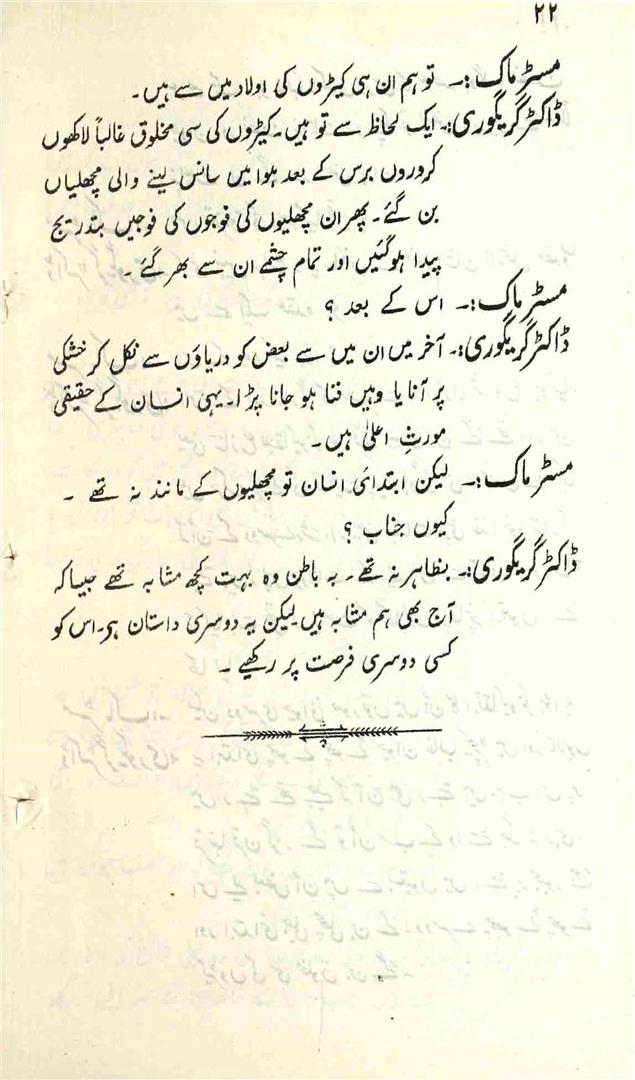 ۲۲
مسٹر ماک :۔ تو ہم ان ہی کیڑوں کی اولاد میں سے ہیں۔
ڈاکٹر گریگوری:۔ ایک لحاظ سے تو ہیں۔ کیڑوں کی سی مخلوق غالباً لاکھوں
کروروں برس کے بعد ہوا میں سانس لینے والی مچھلیاں
بن گئے۔ پھر ان مچھلیوں کی فوجوں کی فوجیں بتدریج
پیدا ہوگئیں اور تمام چشمے ان سے بھر گئے ۔
مسٹر ماک :۔ اس کے بعد ؟
ڈاکٹر گریگوری:۔ آخر میں ان میں سے بعض کو دریاؤں سے نکل کر خشکی
پر آنا یا وہیں فنا ہو جانا پڑا۔ یہی انسان کے حقیقی
مورثِ اعلیٰ ہیں۔
مسٹر ماک :۔ لیکن ابتدائی انسان تو مچھلیوں کے مانند نہ تھے ۔
کیوں جناب ؟
ڈاکٹر گریگوری:۔ بظاہر نہ تھے۔ بہ باطن وہ بہت کچھ مشابہ تھے جیسا کہ
آج بھی ہم مشابہ ہیں لیکن یہ دوسری داستان ہے۔ اس کو
کسی دوسری فرصت پر رکھیے ۔